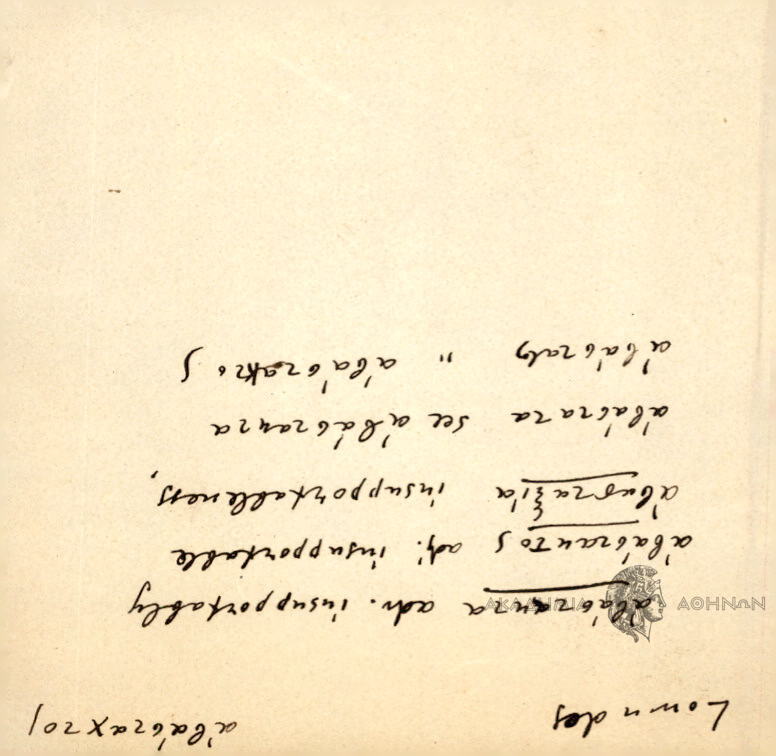 Lowndes ἀβάσταχτος
ἀβάστακτα adv. insupportably
ἀβάστακτος adj. insupportable
ἀβασταξία insupportableness,
ἀβάστατα see ἀβάστακτα
ἀβάστατος " ἀβάστακτος
ΑΚΑΔΗΜΙΑ ΑΘΗΝΩΝ